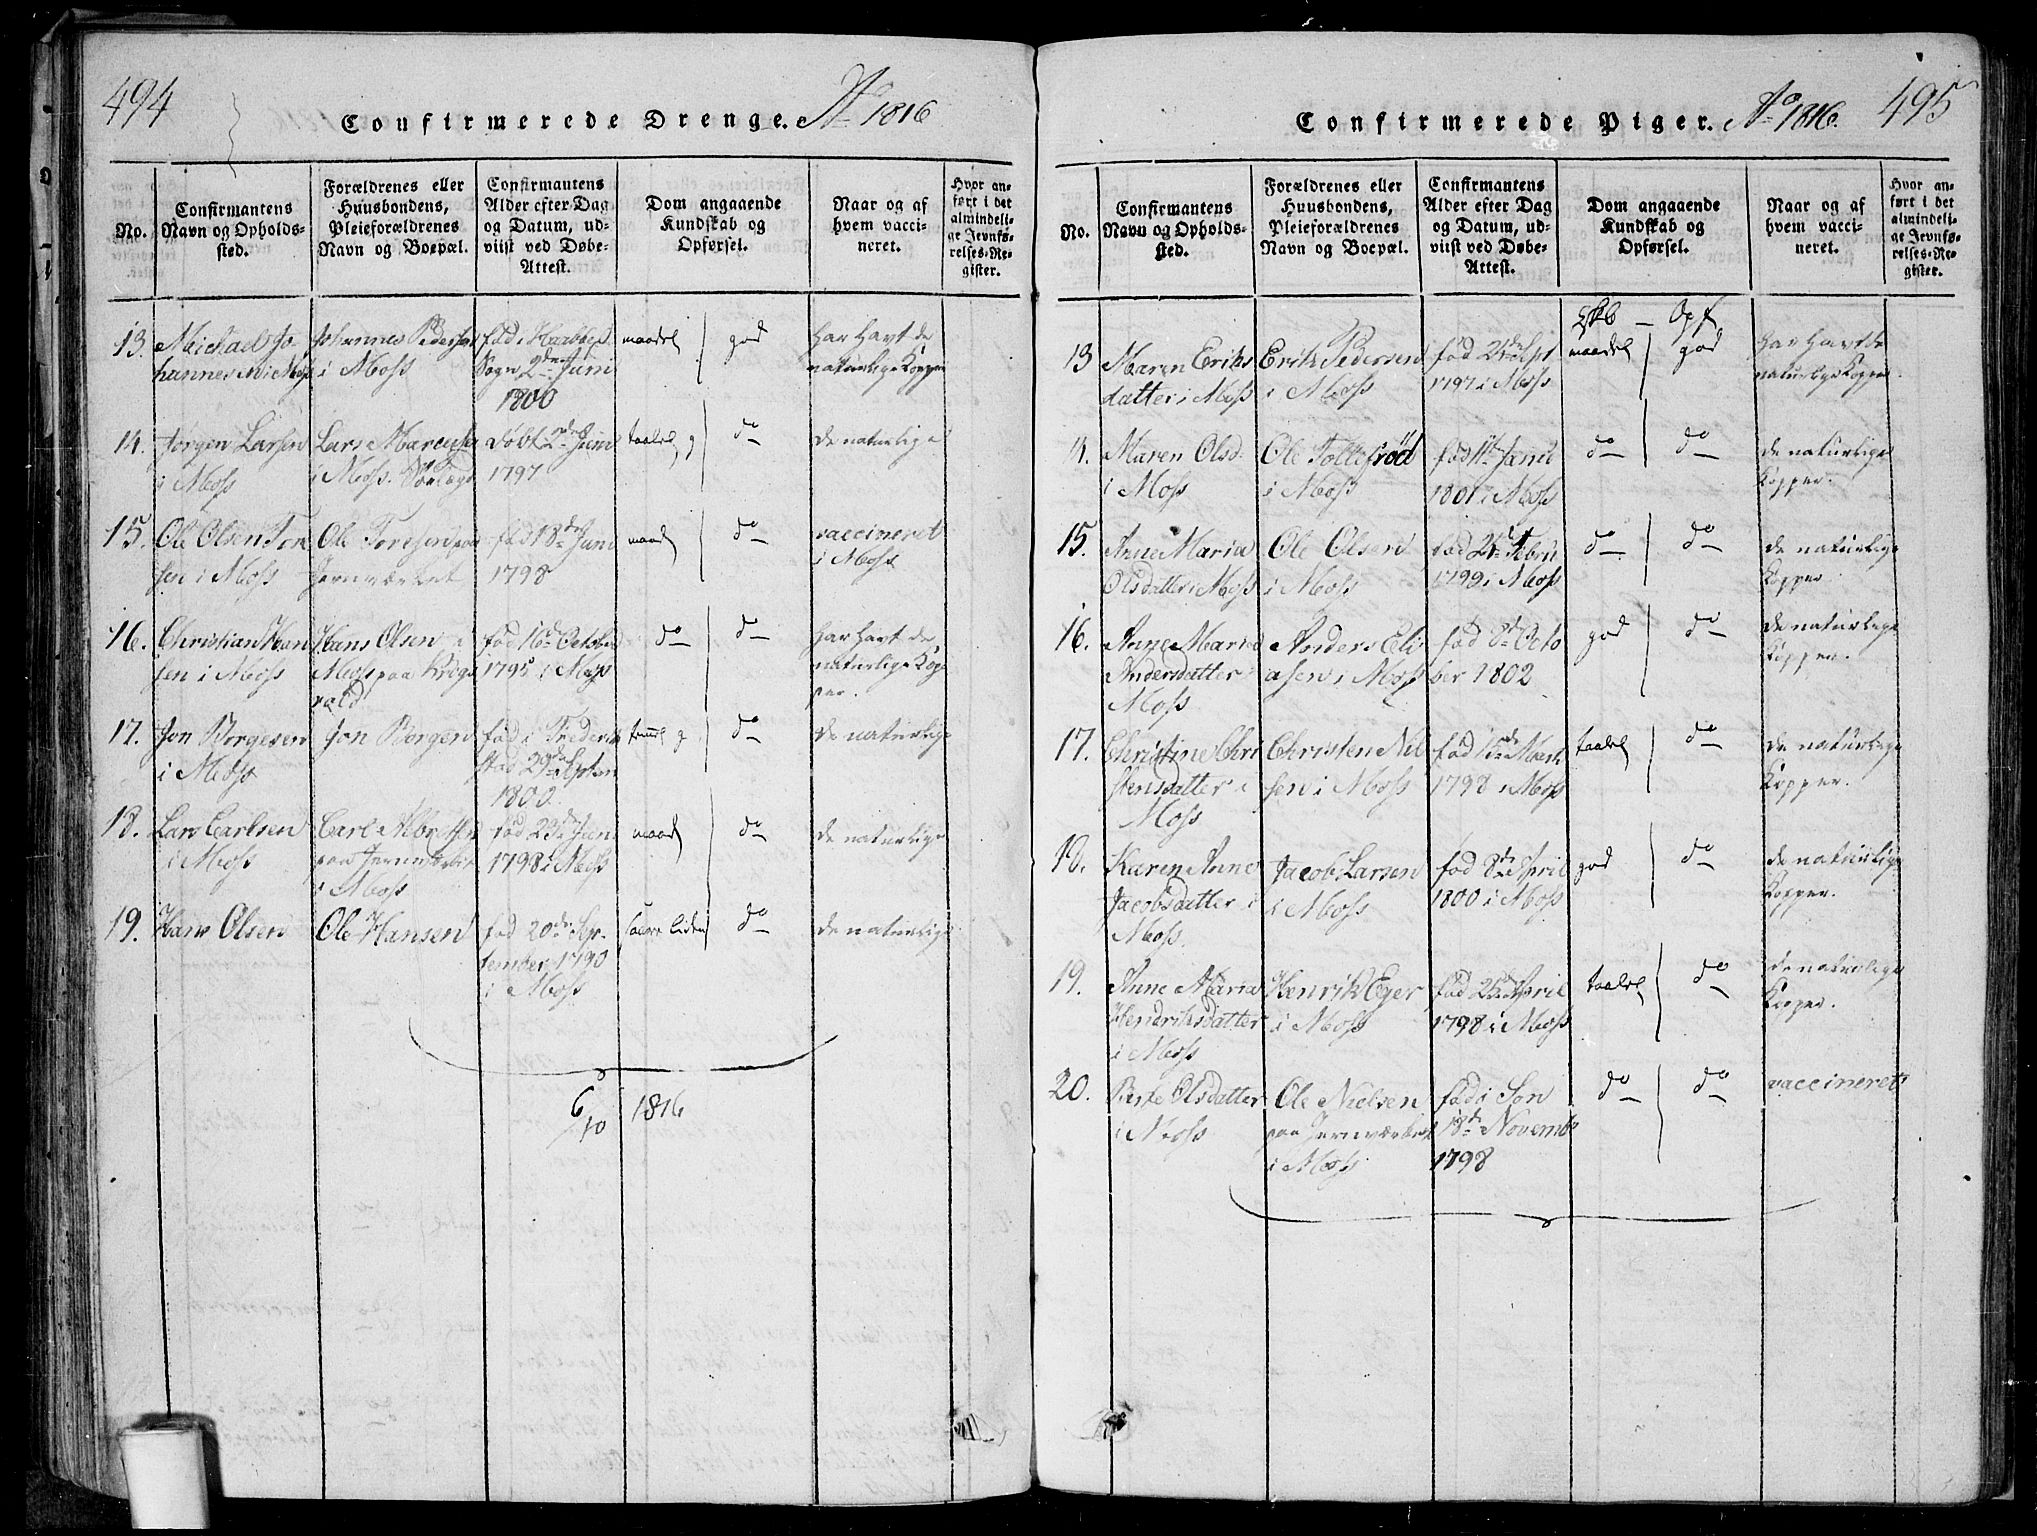 494
Confirmerede Drenge. Ao 1816
No.
Confirmantens
Navn og Opholds-
sted.
Forældrenes eller
Huusbondens,
Pleieforældrenes
Navn og Boepæl.
Confirmantens
Alder efter Dag
og Datum, ud-
viist ved Døbe-
Attest.
Dom angaaende
Kundskab og
Opførsel.
Naar og af
hvem vacci-
neret.
Hvor an-
ført i det
almindeli-
ge Jevnfø-
relses-Re-
gister.
13.
Michael Jo
hannesen i Moss
Johannes Pedersen
i Moss
fød i
Sogn 2den Juni
1800
maadel
god
har havt de
naturlige Kopper
14.
Jørgen Larsen
i Moss
Lars Marcusen
i Moss.
døbt 2den Juni
1797
taalel g
do
de naturlige
15.
Ole Olsen Tore
sen i Moss
Ole Toresen paa
Jernværket
fød 18de Juni
1798
maadel
do
vaccineret
i Moss
16.
Christian Han
sen i Moss
Hans Olsen i
Moss paa Krogs
vold
fød 16de October
1795 i Moss
do
do
har havt de
naturlige Kop
per.
17.
Jon Borgesen
i Moss
Jon Borgen
fød i Frederik
stad 29de Septem
1800.
g
do
de naturlige
18.
Lars Carlsen
i Moss
Carl
paa Jernværket
i Moss
fød 23de Juni
1798 i Moss
maadel
do
de naturlige
19.
Hans Olsen
Ole Hansen
fød 20de Sep-
tember 1790
i Moss
liden
do
de naturlige
6/10 1816
495
Confirmerede Piger. Ao 1816.
No.
Confirmantens
Navn og Opholds-
sted.
Forældrenes eller
Huusbondens,
Pleieforældrenes
Navn og Boepæl.
Confirmantens
Alder efter Dag
og Datum, ud-
viist ved Døbe-
Attest.
Dom angaaende
Kundskab og
Opførsel.
Naar og af
hvem vacci-
neret.
Hvor an-
ført i det
almindeli-
ge Jevnfø-
relses-Re-
gister.
Opf
13
Maren Eriks
datter i Moss
Erik Pedersen
i Moss
fød 21de Spt
1797 i Moss
maadel
god
har havt de
naturlige Kopper.
14.
Maren Olsd.
i Moss
Ole Tollefsrød
i Moss
fød 11te Janu
1801 i Moss
do
do
de naturlige
Kopper.
15.
Anne Maria
Olsdatter i Moss
Ole Olsen
i Moss
fød 21de Febru
1799 i Moss
do
do
de naturlige
Kopper.
16.
Anne Maria
Andersdatter i
Moss
Anders Eli
asen i Moss
fød 8de Octo
ber 1802
god
do
de naturlige
Kopper.
17.
Christine Chri
stensdatter i
Moss
Christen Niel
sen i Moss
fød 15de Mart
1798 i Moss
taalel
do
de naturlige
Kopper.
18.
Karen Anne
Jacobsdatter i
Moss.
Jacob Larsen
i Moss
fød 8de April
1800 i Moss
god
do
de naturlige
Kopper.
19.
Anne Maria
Hendriksdatter
i Moss
Henrik Eger
i Moss
fød 25de April
1798 i Moss
taalel
do
de naturlige
Kopper.
20.
Berte Olsdatter
i Moss
Ole Nielsen
paa Jernværket
i Moss
fød i Son
18de Novemb
1798
do
do
vaccineret